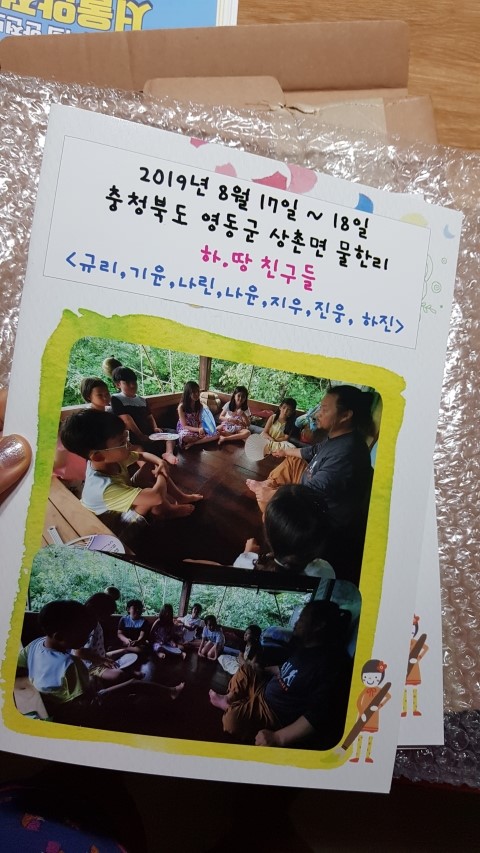 2019년 8월 17일 ~ 18일
충청북도 영동군 상촌면 물한리
하.땅 친구들
<규리,기윤,나린,나윤,지우,진웅, 하진>